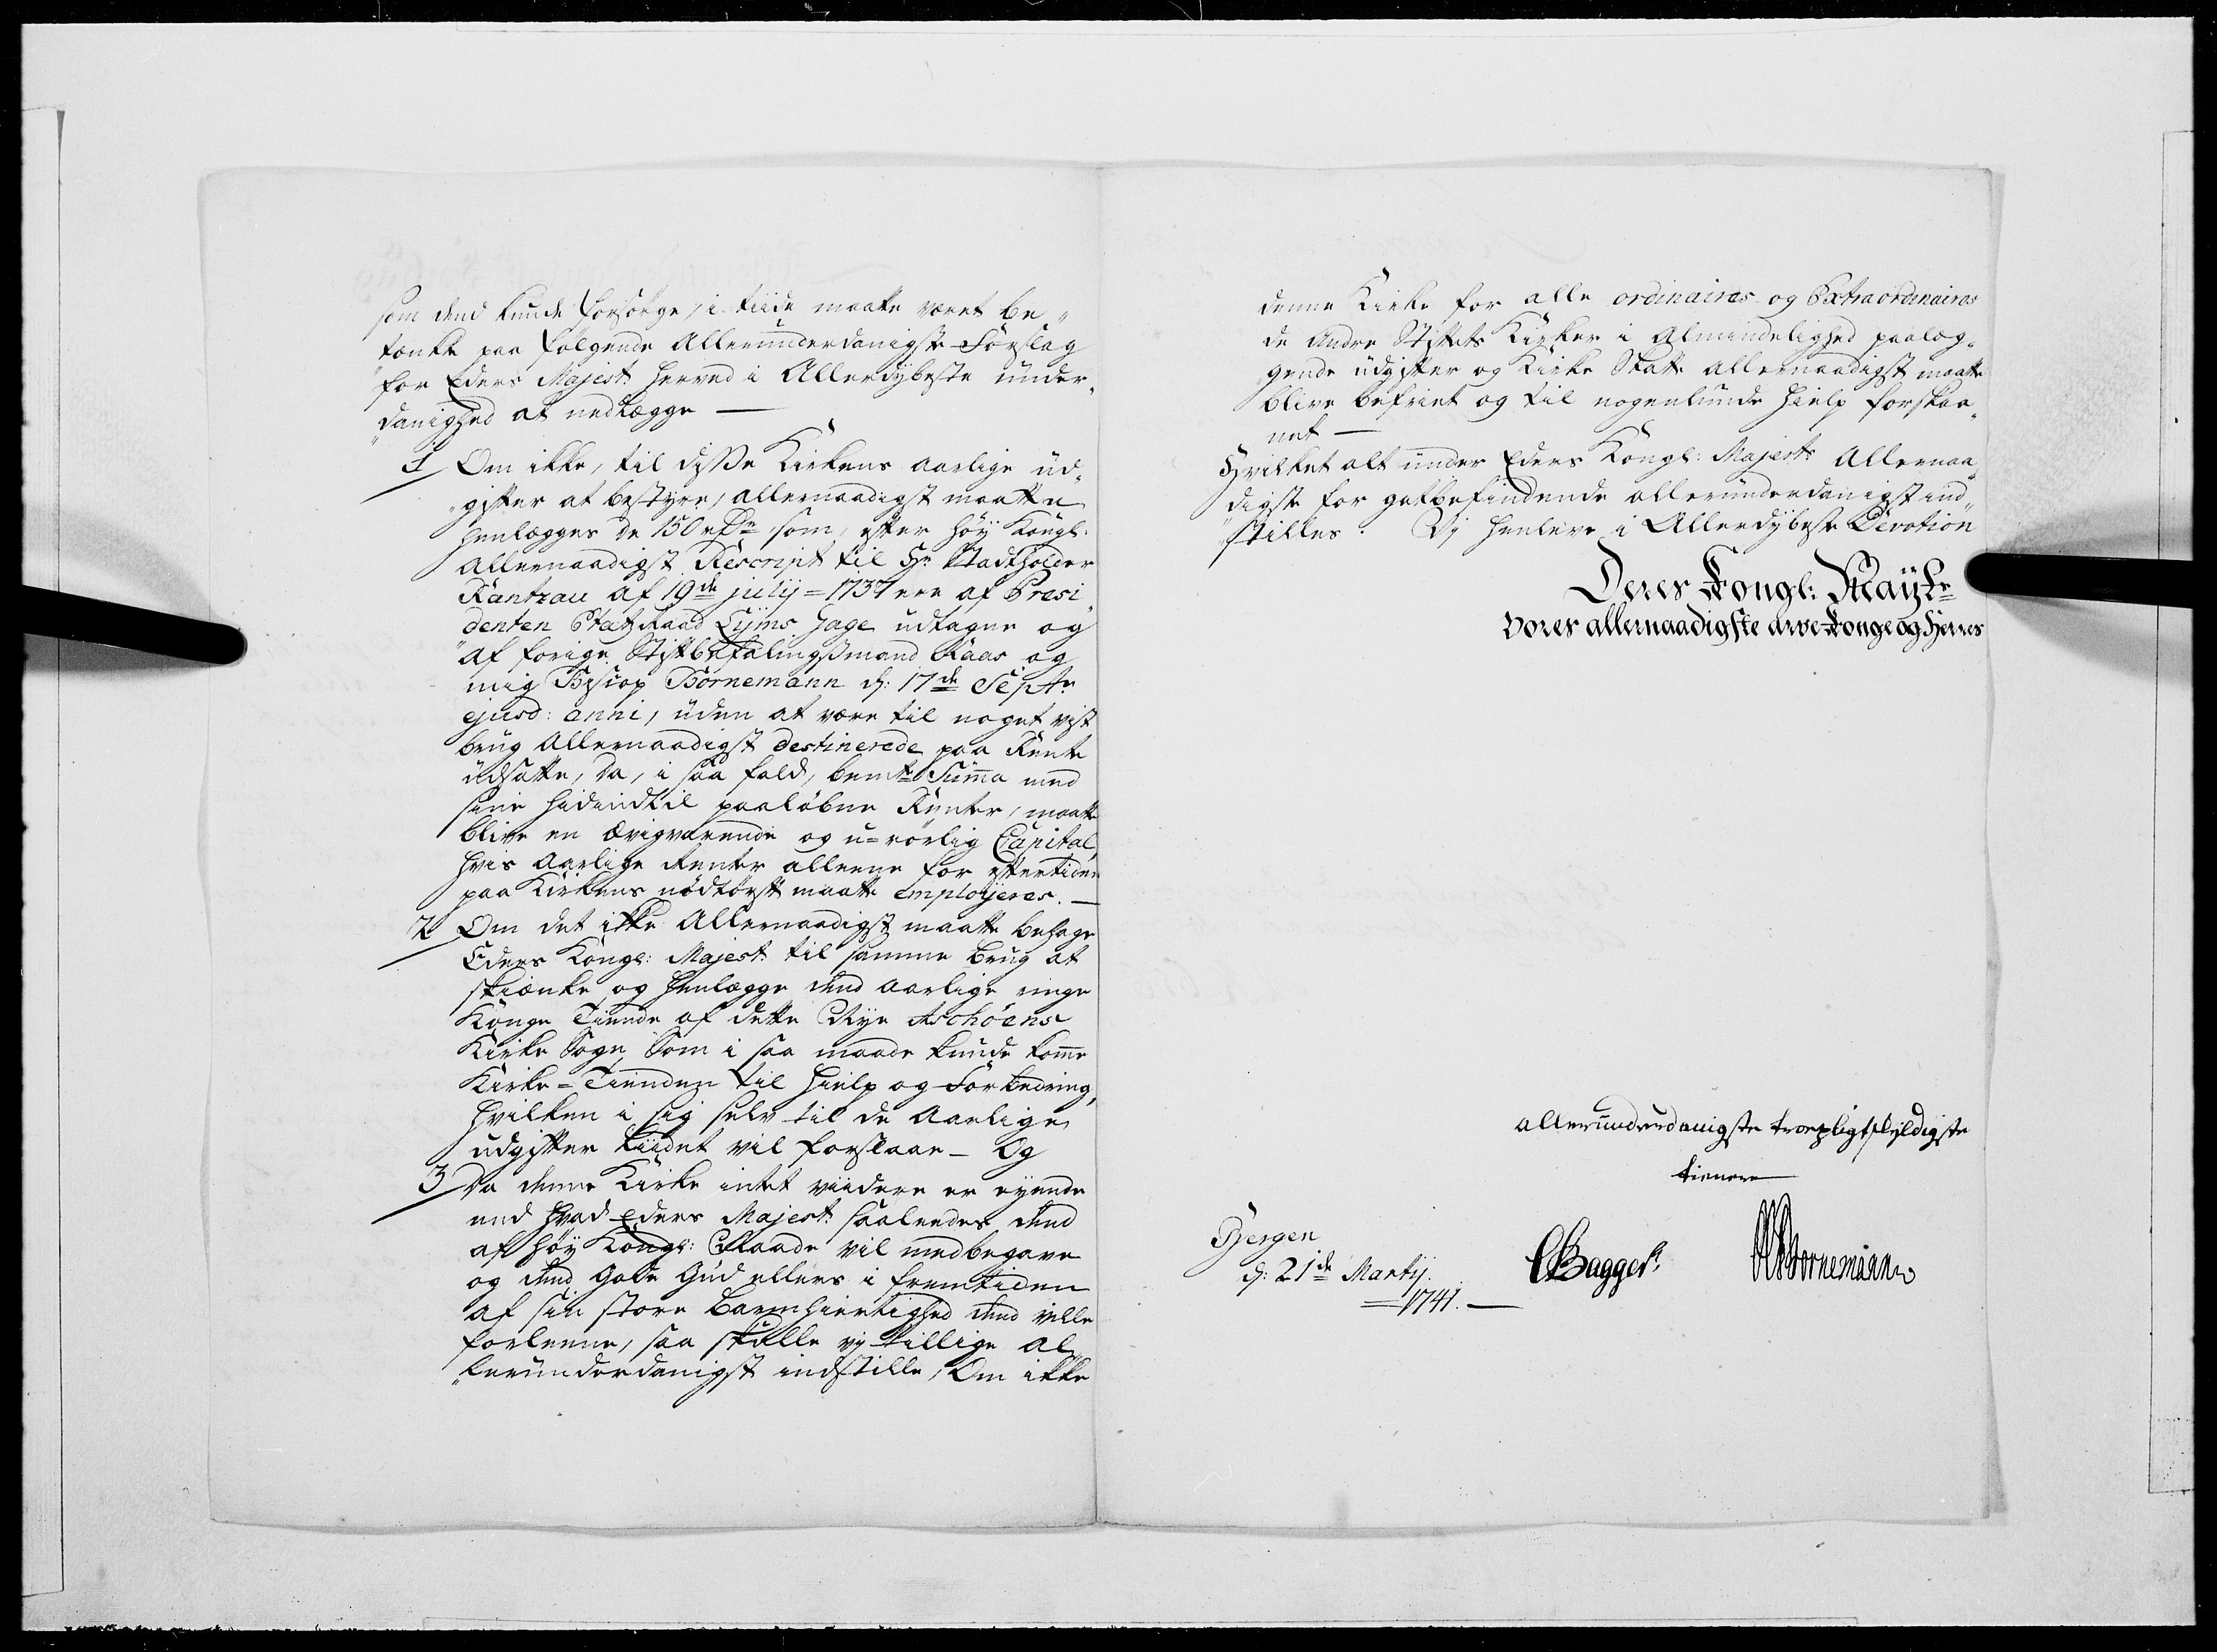 som dend kunde forsørge, i tiide maatte været be„
„tænkte paa følgende Allerunderdanigste Forslag
for Eders Majest: herved i Allerdybeste under„
„danighed at nedlægge —
1/ Om ikke, til disse Kirkens aarlige ud„
„gifter at bestyre, allernaadigst maatte
henlægges de 150 rdr som, efter høy Kongl:
allernaadigst Rescript til Hr Stadtholder
Rantzau af 19de julij = 1737 ere af Præsi„
„denten EtatzRaad Lÿms Hage udtagne og
af forige Stiftbefalingsmand Kaas og
mig Biscop Bornemann d: 17de Septr
ejusd: anni, uden at være til noget vist
brug Allernaadigst destinerede paa Rente
udsatte, da, i saa fald, bemte Summa med
sine hidindtil paaløbne Renter, maatte
blive en ævigvarende og u=rørlig Capital,
hvis aarlige Renter alleene for eftertiden
paa Kirkens nødtørft maatte emploÿeres. —
2/ Om det ikke Allernaadigst maatte behage
Eders Kongl: Majest: til samme brug at
skiænke og henlægge dend aarlige ringe
Konge Tiende af dette Nÿe Aschøens
Kirke Sogn, Som i saa maade kunde komme
Kirke=Tienden til hielp og Forbedring,
hvilken i sig selv til de Aarlige
udgifter liidet vil forslaae — Og
3/ Da denne Kirke intet viidere er eÿende
end hvad Eders Majest: saaledes dend
af høy Kongl: Naade vil medbegave
og dend gode Gud ellers i fremtiden
af sin store Barmhiertighed dend ville
forleene, saa skulle vj tillige al„
„lerunderdanigst indstille, Om ikke
denne Kirke for alle ordinaires og Extraordinaires
de Andre Stiftets Kirker i Almindelighed paalæg„
„gende udgifter og Kirke Skatte allernaadigst maatte
blive befriet og til nogenlunde hielp forskaa„
net —
Hvilket alt under Eders Kongl: Majests Allernaa„
digste for gotbefindende allerunderdanigst ind„
„stilles. Vj henleve i Allerdybeste Devotion
Deres Kongl: Mayts
vores allernaadigste arve-Konge og Herres
allerunderdanigste troepligtskyldigste
tienere
Bergen
d: 21de Martij.
1741. —
CBagger
Bornemann